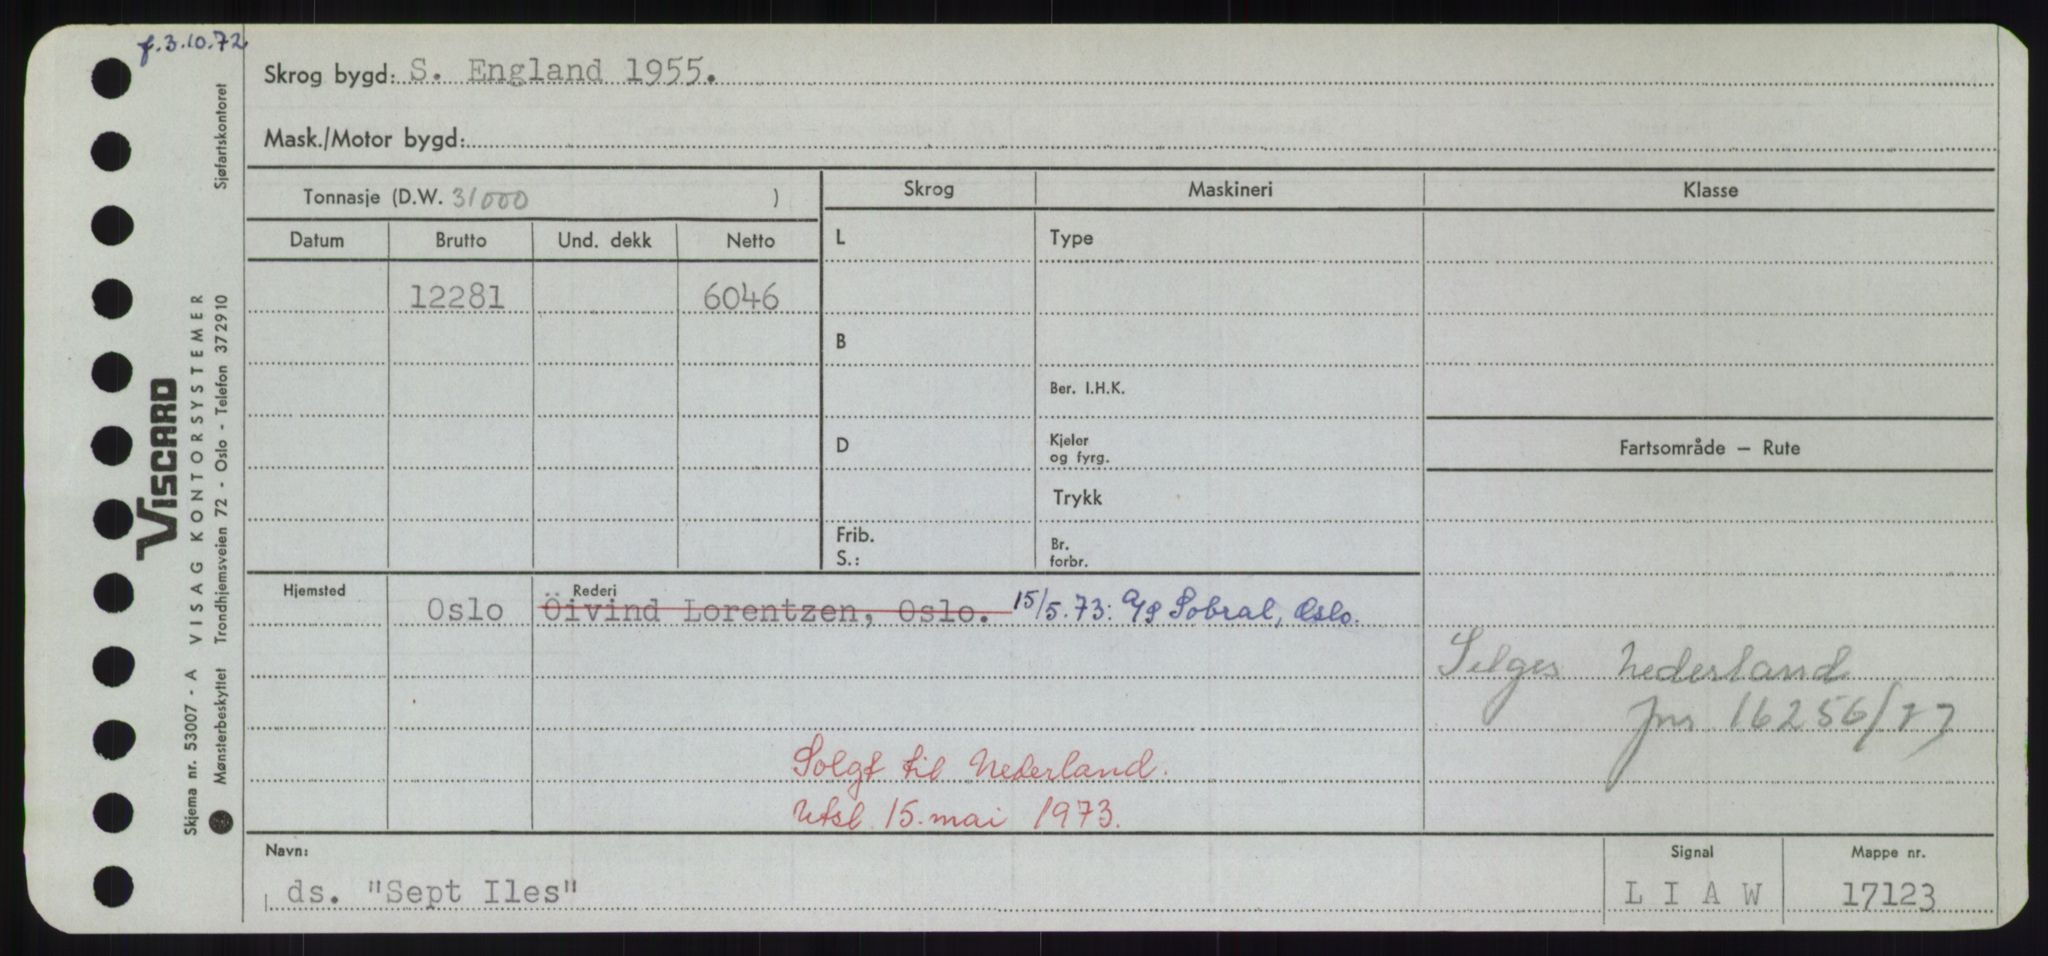 f. 3.10.72
Skrog bygd: S. England 1955.
Mask./Motor bygd:
Tonnasje (D.W. 31000 )
Skrog Maskineri Klasse
Datum Brutto Und. dekk Netto
L Type
12281 6046
B
Ber. I.H.K.
D Kjeler og fyrg.
Fartsområde — Rute
Trykk
Frib.
S.:
Br. forbr.
Hjemsted Rederi
Oslo Öivind Lorentzen, Oslo. 15/5.73: A/S Sobral, Oslo.
Selges Nederland
jnr 16256/73
Solgt til Nederland.
Utsl. 15. mai 1973.
Navn: Signal Mappe nr.
ds. "Sept Iles" L I A W 17123
VISCARD
VISAG KONTORSYSTEMER
Sjøfartskontoret
Skjema nr. 53007 - A
Mønsterbeskyttet Trondhjemsveien 72 - Oslo - Telefon 37 29 10